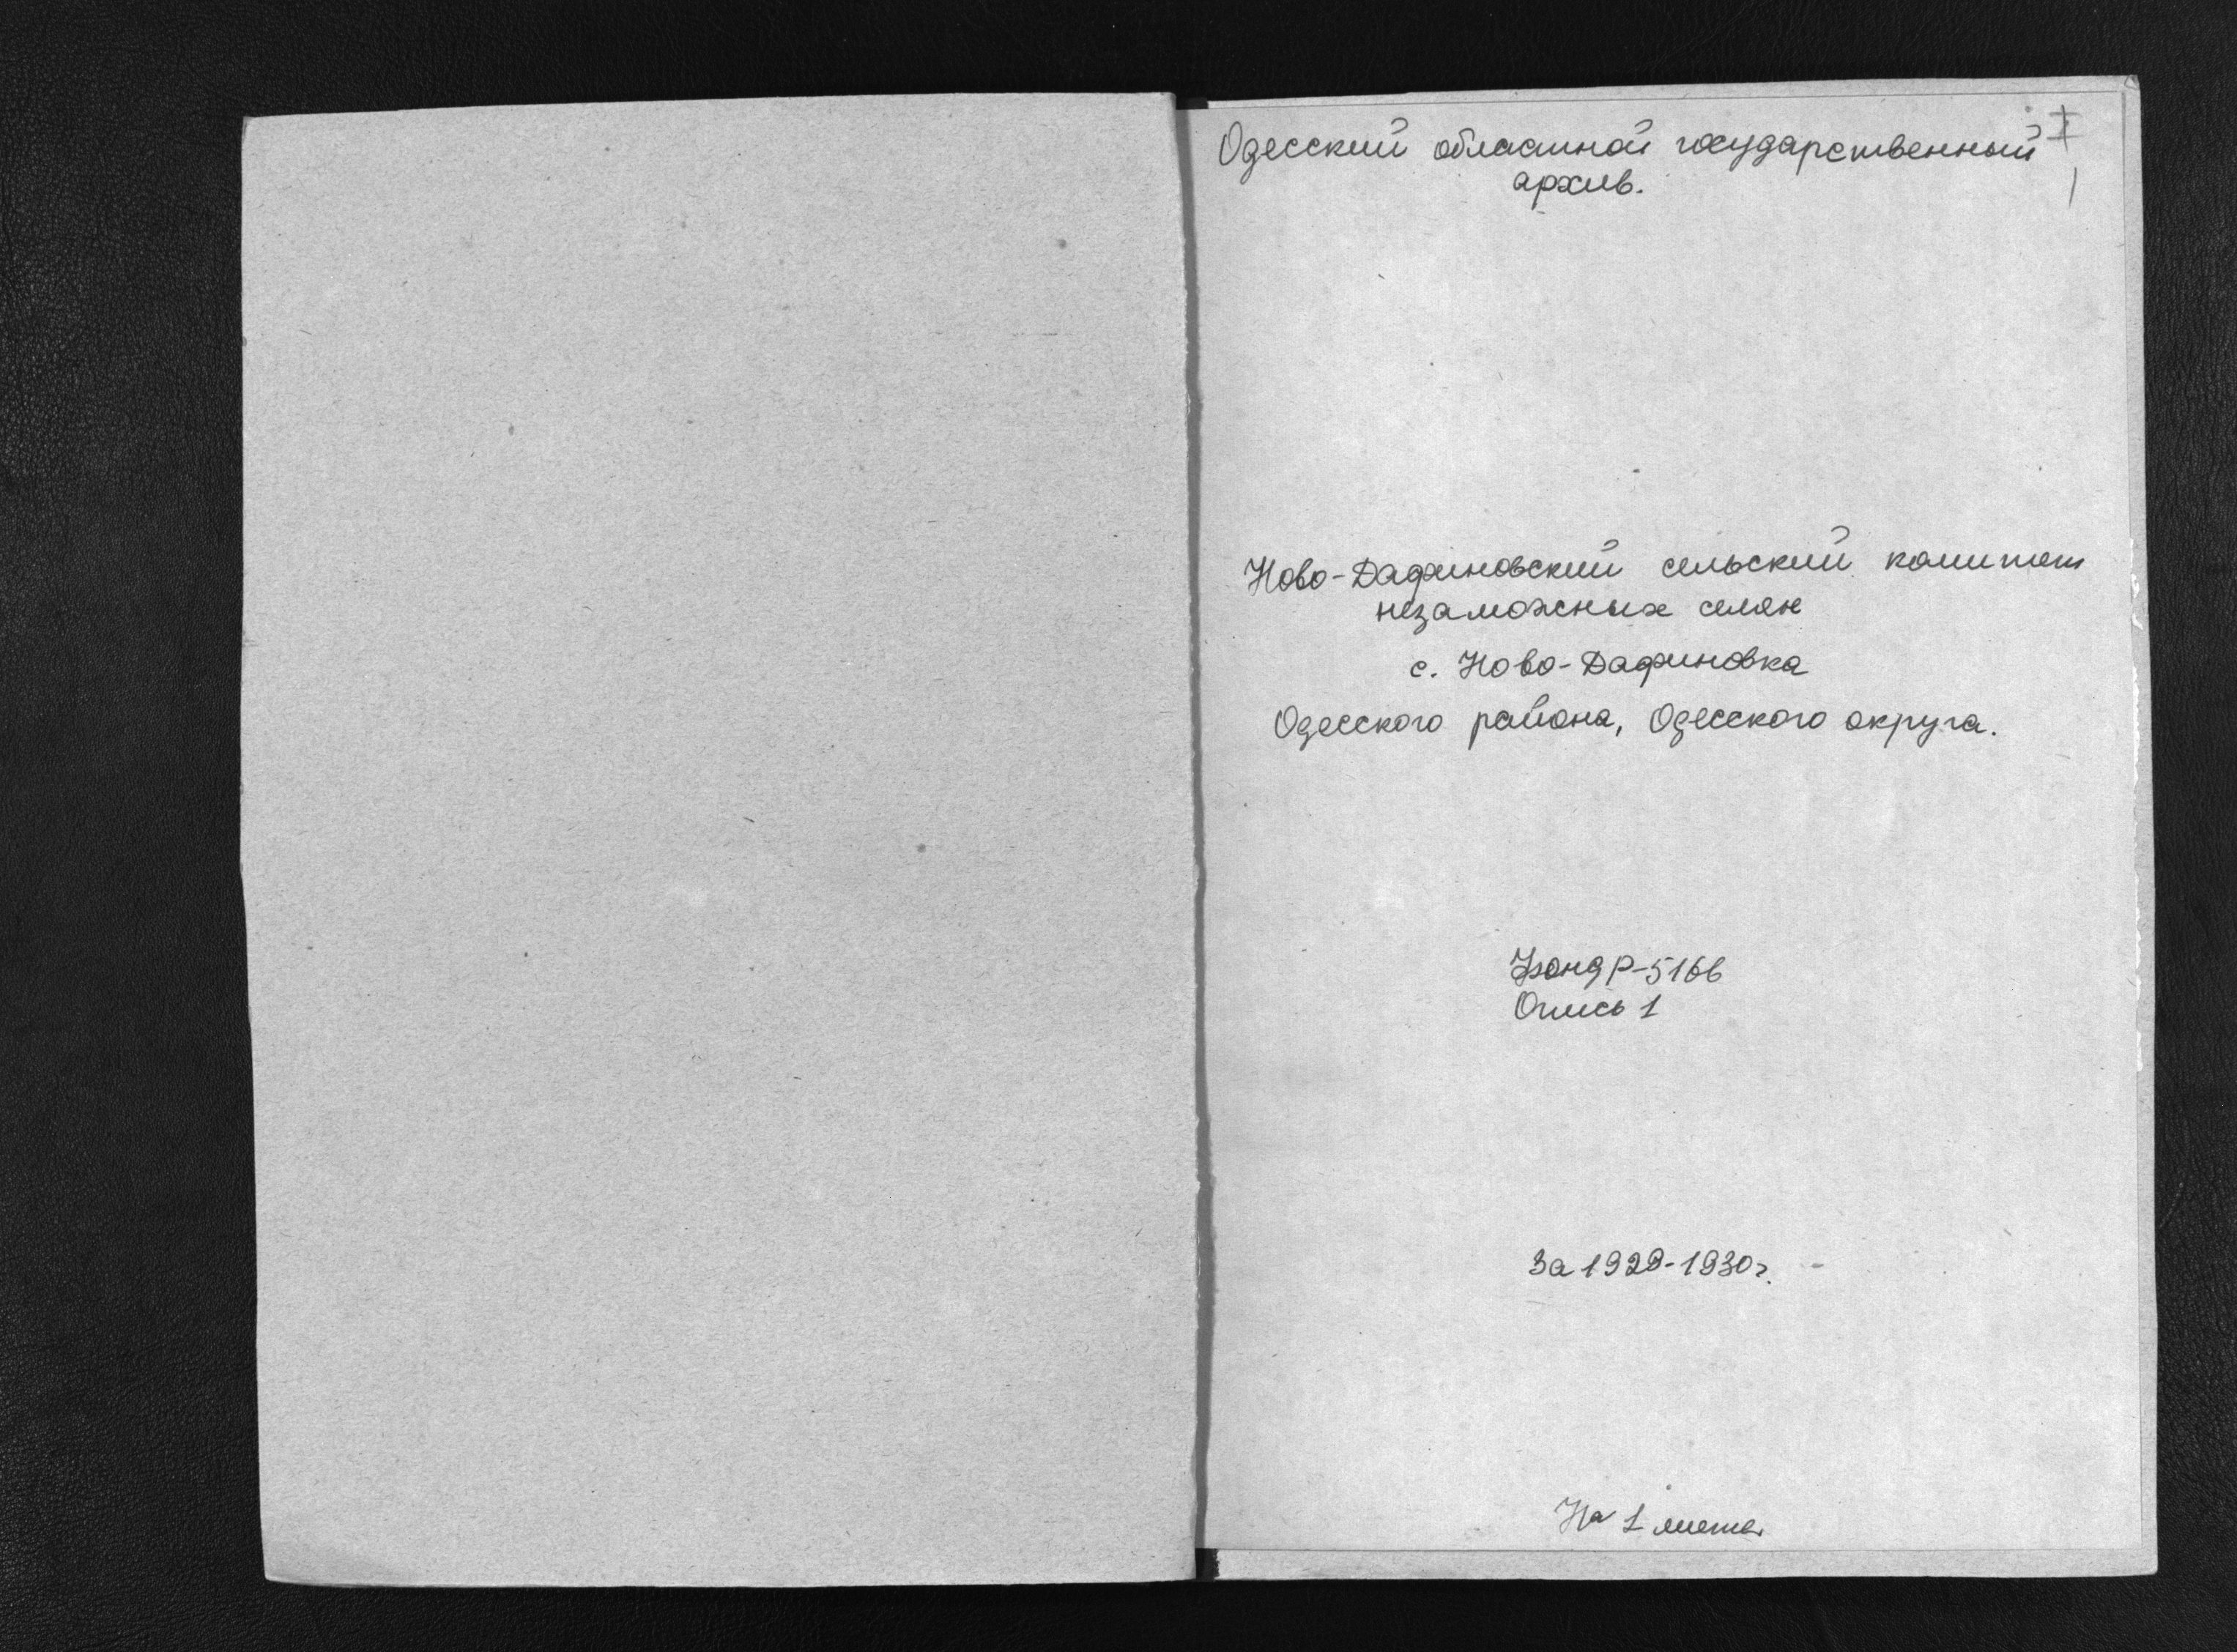 Одесский областной государственный
I
архив.
1
Ново-Дафиновский сельский комитет
незаможных селян
с. Ново-Дафиновка
Одесского района, Одесского округа.
Фонд Р-5166
Опись 1
За 1929-1930 г.
На 1 листе